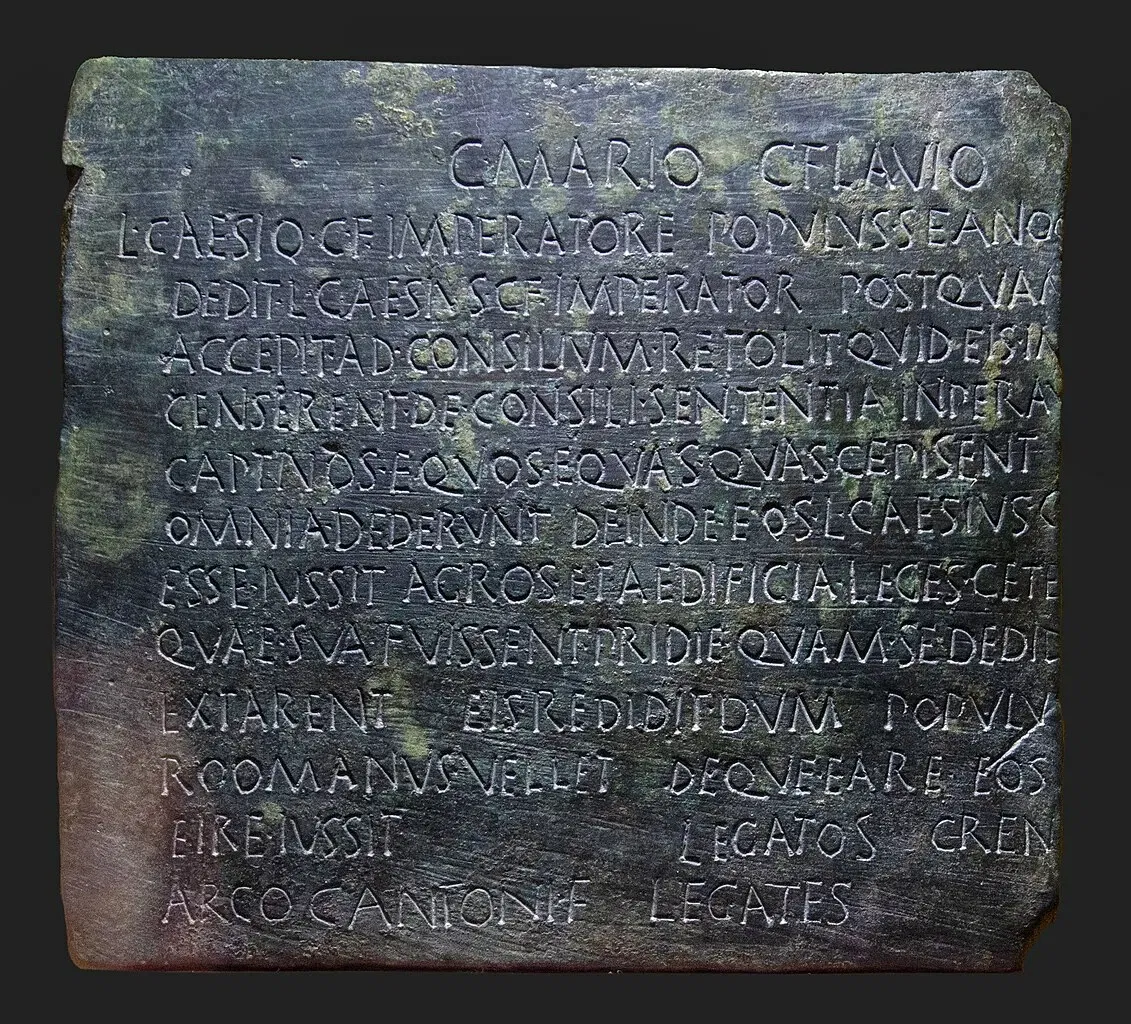 C·MARIO C FLAVIO
L·CAESIO·C·F·IMPERATORE POPVLVS·SEANOC
DEDIT·L·CAESIVS·C·F·IMPERATOR POSTQVAM
ACCEPIT·AD·CONSILIVM·RETOLIT·QVID·EIS·IM
CENSERENT·DE·CONSILI·SENTENTIA INPERA
CAPTIVOS·EQVOS·EQVAS·QVAS·CEPISENT
OMNIA·DEDERVNT DEINDE·EOS·L·CAESIVS·C
ESSE·IVSSIT AGROS·ET·AEDIFICIA·LEGES·CETE
QVAE·SVA·FVISSENT·PRIDIE·QVAM·SE·DEDID
EXTARENT EIS·REDIDIT·DVM POPVLV
ROOMANVS·VELLET DEQVE·EA·RE· EOS
EIRE·IVSSIT LEGATOS CREN
ARCO C ANTONI·F LEGATES